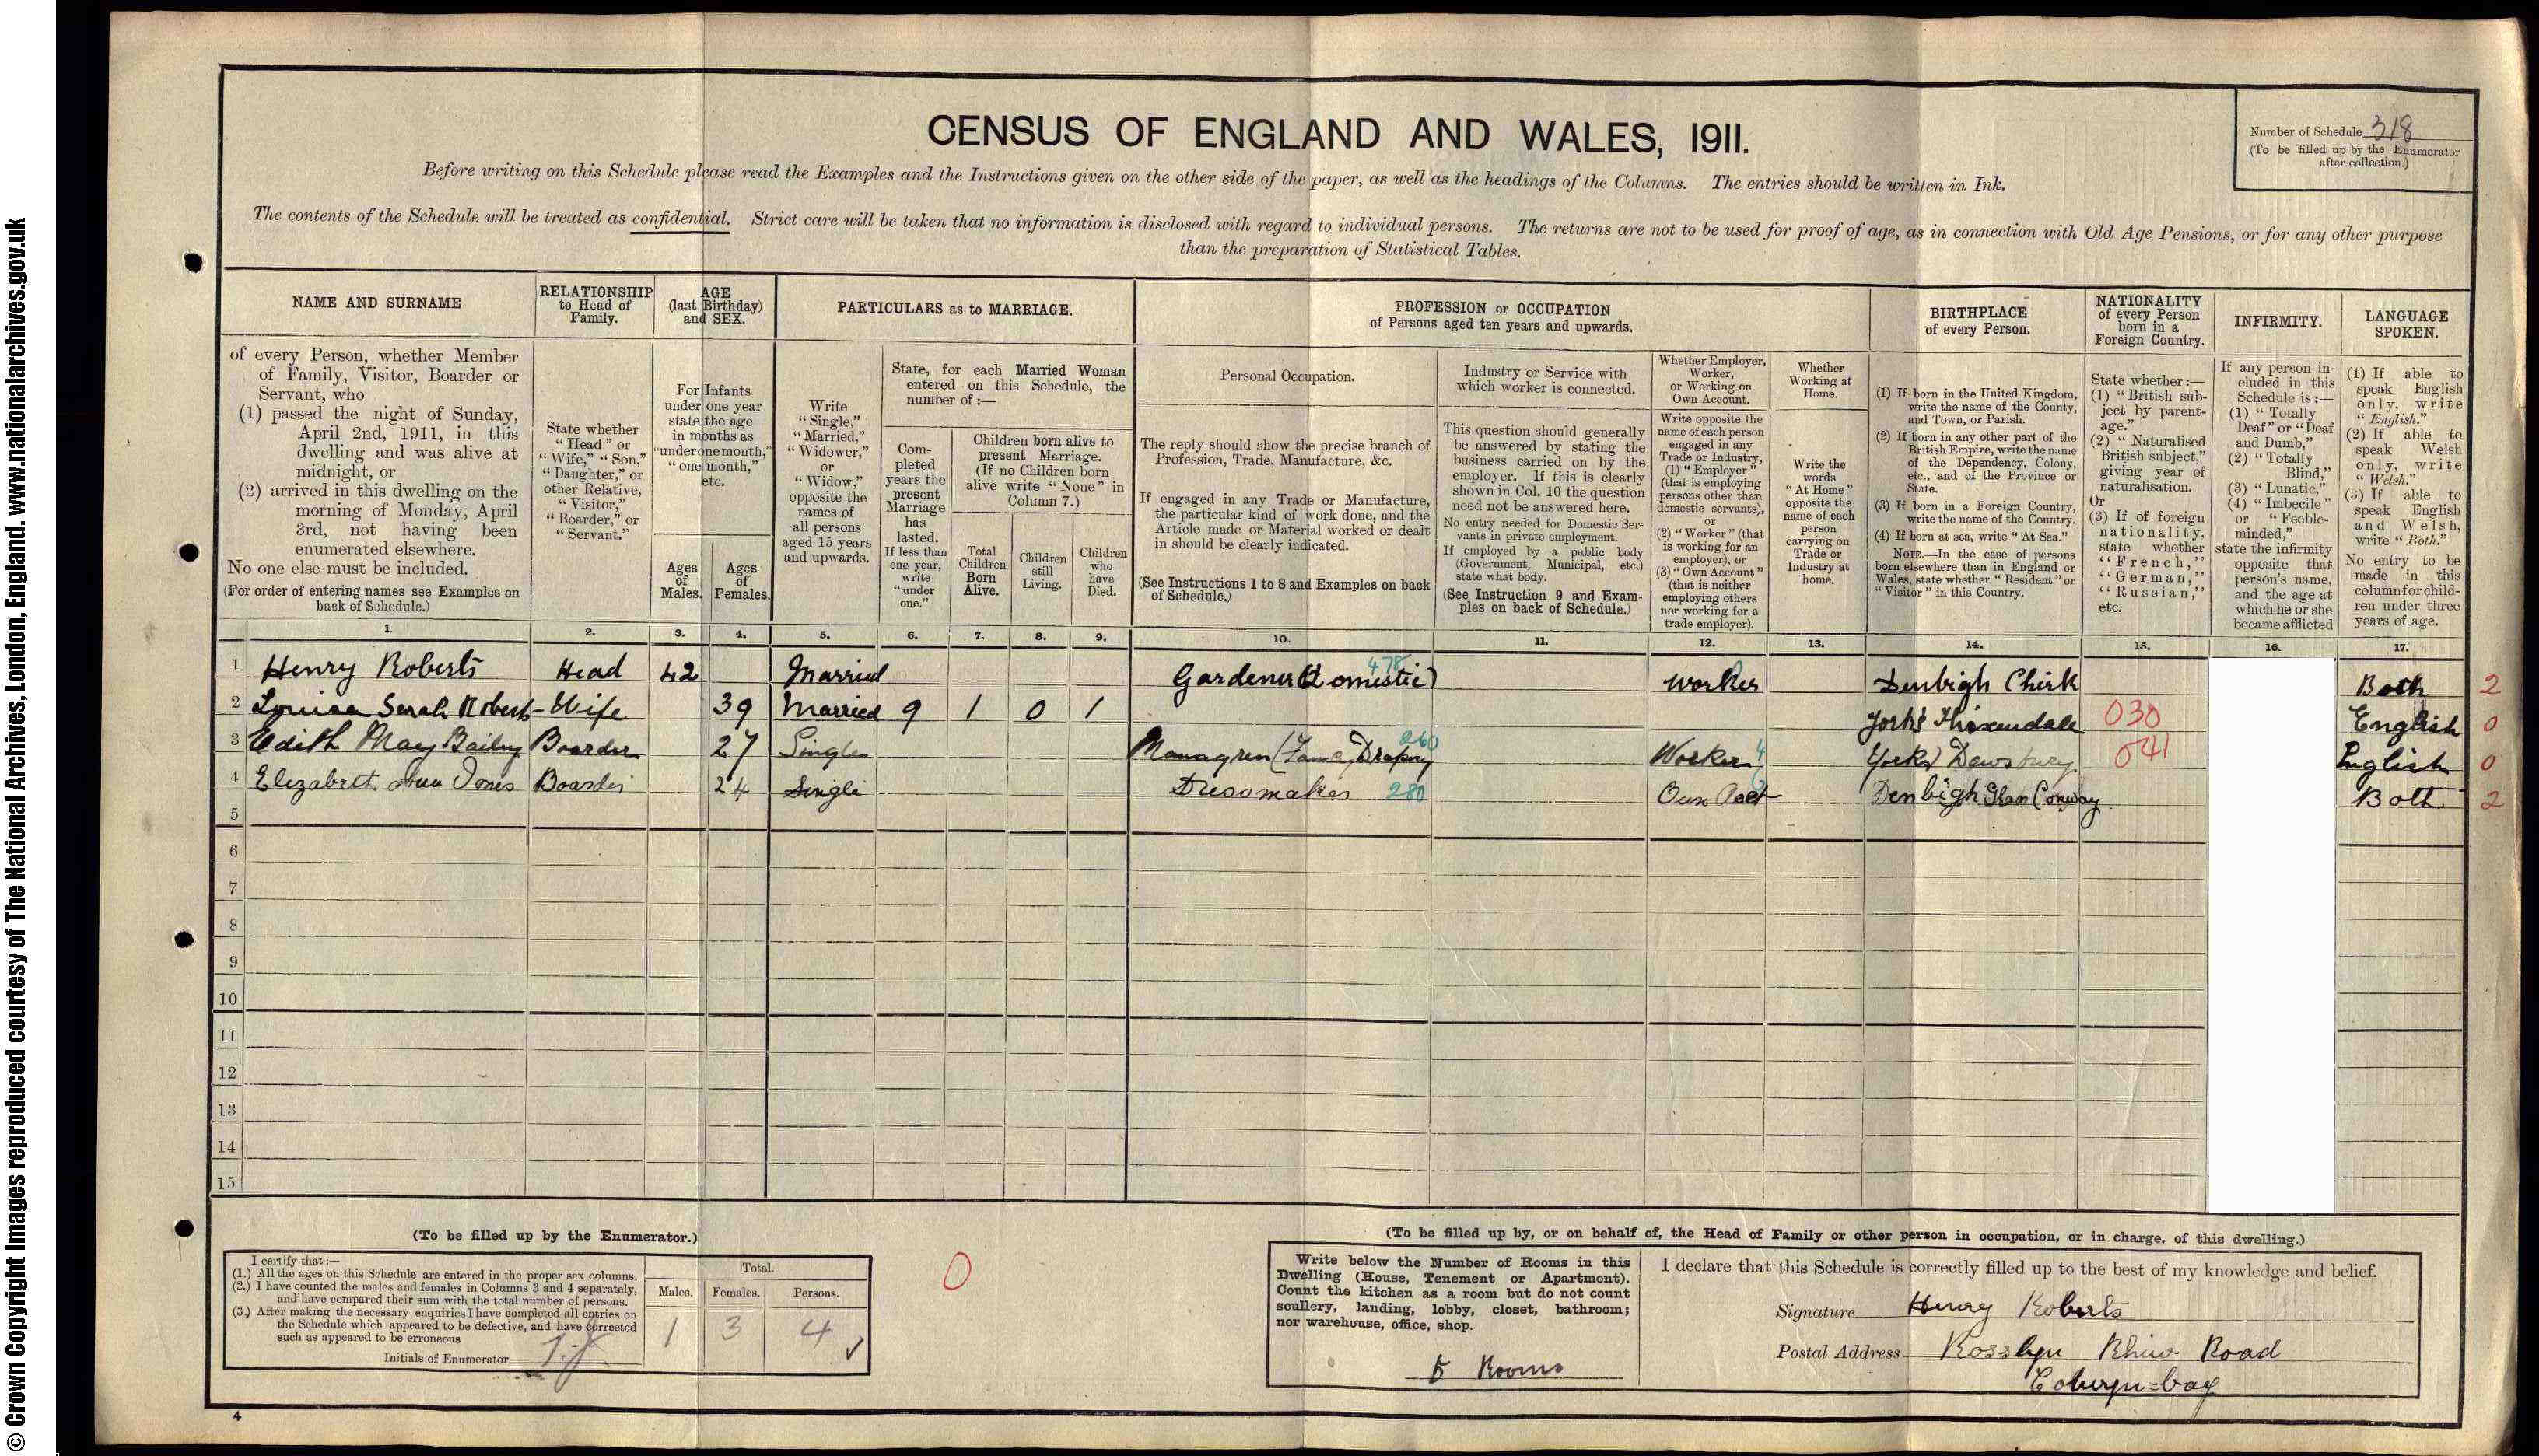 © Crown Copyright Images reproduced courtesy of The National Archives, London, England. www.nationalarchives.gov.uk
CENSUS OF ENGLAND AND WALES, 1911.
Number of Schedule 318
(To be filled up by the Enumerator
after collection.)
Before writing on this Schedule please read the Examples and the Instructions given on the other side of the paper, as well as the headings of the Columns. The entries should be written in Ink.
The contents of the Schedule will be treated as confidential. Strict care will be taken that no information is disclosed with regard to individual persons. The returns are not to be used for proof of age, as in connection with Old Age Pensions, or for any other purpose
than the preparation of Statistical Tables.
NAME AND SURNAME
of every Person, whether Member
of Family, Visitor, Boarder or
Servant, who
(1) passed the night of Sunday,
April 2nd, 1911, in this
dwelling and was alive at
midnight, or
(2) arrived in this dwelling on the
morning of Monday, April
3rd, not having been
enumerated elsewhere.
No one else must be included.
(For order of entering names see Examples on
back of Schedule.)
1.
RELATIONSHIP
to Head of
Family.
State whether
"Head" or
"Wife," "Son,"
"Daughter," or
other Relative,
"Visitor,"
"Boarder," or
"Servant."
2.
AGE
(last Birthday)
and SEX.
For Infants
under one year
state the age
in months as
"under one month,"
"one month,"
etc.
Ages
of
Males.
Ages
of
Females.
3. 4.
PARTICULARS as to MARRIAGE.
Write
"Single,"
"Married,"
"Widower,"
or
"Widow,"
opposite the
names of
all persons
aged 15 years
and upwards.
5.
State, for each Married Woman
entered on this Schedule, the
number of :—
Com-
pleted
years the
present
Marriage
has
lasted.
If less than
one year,
write
"under
one."
6.
Children born alive to
present Marriage.
(If no Children born
alive write "None" in
Column 7.)
Total
Children
Born
Alive.
7.
Children
still
Living.
8.
Children
who
have
Died.
9.
PROFESSION or OCCUPATION
of Persons aged ten years and upwards.
Personal Occupation.
The reply should show the precise branch of
Profession, Trade, Manufacture, &c.
If engaged in any Trade or Manufacture,
the particular kind of work done, and the
Article made or Material worked or dealt
in should be clearly indicated.
(See Instructions 1 to 8 and Examples on back
of Schedule.)
10.
Industry or Service with
which worker is connected.
This question should generally
be answered by stating the
business carried on by the
employer. If this is clearly
shown in Col. 10 the question
need not be answered here.
No entry needed for Domestic Ser-
vants in private employment.
If employed by a public body
(Government, Municipal, etc.)
state what body.
(See Instruction 9 and Exam-
ples on back of Schedule.)
11.
Whether Employer,
Worker,
or Working on
Own Account.
Write opposite the
name of each person
engaged in any
Trade or Industry,
(1) "Employer"
(that is employing
persons other than
domestic servants),
or
(2) "Worker" (that
is working for an
employer), or
(3) "Own Account"
(that is neither
employing others
nor working for a
trade employer).
12.
Whether
Working at
Home.
Write the
words
"At Home"
opposite the
name of each
person
carrying on
Trade or
Industry at
home.
13.
BIRTHPLACE
of every Person.
(1) If born in the United Kingdom,
write the name of the County,
and Town, or Parish.
(2) If born in any other part of the
British Empire, write the name
of the Dependency, Colony,
etc., and of the Province or
State.
(3) If born in a Foreign Country,
write the name of the Country.
(4) If born at sea, write "At Sea."
NOTE.—In the case of persons
born elsewhere than in England or
Wales, state whether "Resident" or
"Visitor" in this Country.
14.
NATIONALITY
of every Person
born in a
Foreign Country.
State whether :—
(1) "British sub-
ject by parent-
age."
(2) "Naturalised
British subject,"
giving year of
naturalisation.
Or
(3) If of foreign
nationality,
state whether
"French,"
"German,"
"Russian,"
etc.
15.
INFIRMITY.
If any person in-
cluded in this
Schedule is:—
(1) "Totally
Deaf" or "Deaf
and Dumb,"
(2) "Totally
Blind,"
(3) "Lunatic,"
(4) "Imbecile"
or "Feeble-
minded,"
state the infirmity
opposite that
person's name,
and the age at
which he or she
became afflicted
16.
LANGUAGE
SPOKEN.
(1) If able to
speak English
only, write
"English."
(2) If able to
speak Welsh
only, write
"Welsh."
(3) If able to
speak English
and Welsh,
write "Both."
No entry to be
made in this
column for child-
ren under three
years of age.
17.
1 Henry Roberts Head 42 Married Gardener (Domestic) 478 Worker Denbigh Chirk Both 2
2 Louisa Sarah Roberts Wife 39 Married 9 1 0 1 Yorks Thixendale 030 English 0
3 Edith May Bailey Boarder 27 Single Drapery 260 Worker 4 Yorks Dewsbury 041 English 0
4 Elizabeth Ann Jones Boarder 24 Single Dressmaker 280 Own Denbigh Glan Conway Both 2
5
6
7
8
9
10
11
12
13
14
15
(To be filled up by the Enumerator.)
I certify that :—
(1.) All the ages on this Schedule are entered in the proper sex columns.
(2.) I have counted the males and females in Columns 3 and 4 separately,
and have compared their sum with the total number of persons.
(3.) After making the necessary enquiries I have completed all entries on
the Schedule which appeared to be defective, and have corrected
such as appeared to be erroneous
Initials of Enumerator
Total.
Males. Females. Persons.
1 3 4
0
(To be filled up by, or on behalf of, the Head of Family or other person in occupation, or in charge, of this dwelling.)
Write below the Number of Rooms in this
Dwelling (House, Tenement or Apartment).
Count the kitchen as a room but do not count
scullery, landing, lobby, closet, bathroom;
nor warehouse, office, shop.
Rooms
I declare that this Schedule is correctly filled up to the best of my knowledge and belief.
Signature Henry Roberts
Postal Address Rosslyn Rhiw Road
Colwyn=bay
4